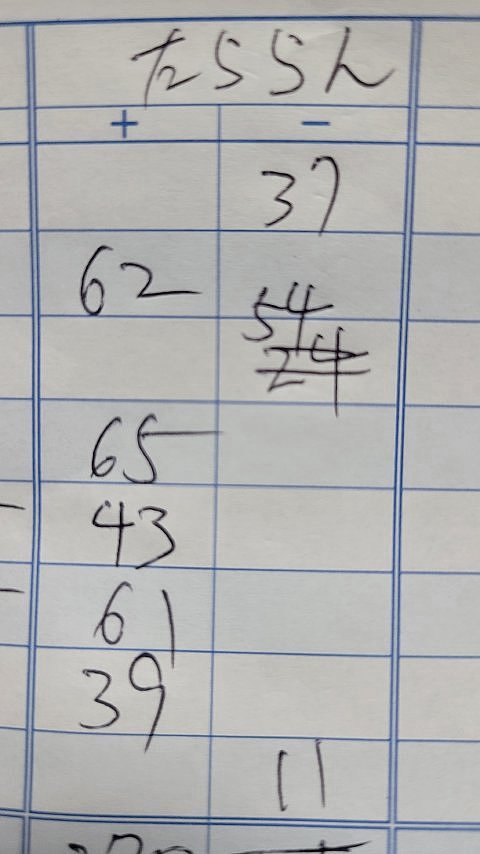 たSSん
+ −
37
62
54
24
65
43
61
39
11